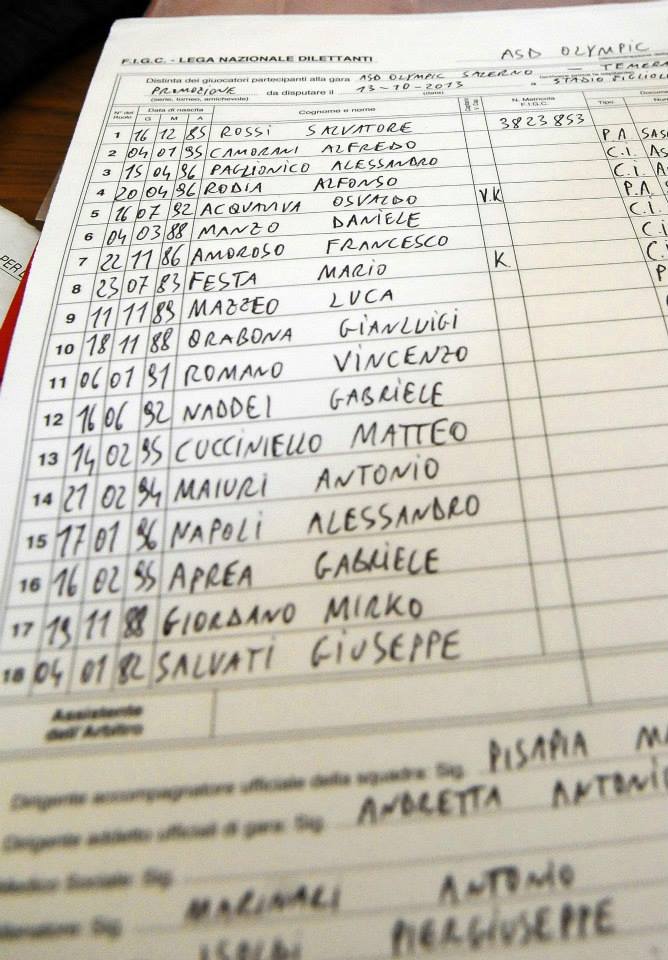 ASD OLYMPIC
F.I.G.C. - LEGA NAZIONALE DILETTANTI
Distinta dei giuocatori partecipanti alla gara ASD OLYMPIC SALERNO - TEMERA
PROMOZIONE da disputare il 13-10-2013 a STADIO FIGLIOL
(serie, torneo, amichevole) (data)
N° dei Ruoli Data di nascita G M A Cognome e nome N. Matricola F.I.G.C. Tipo Docume
1 16 12 85 ROSSI SALVATORE 3823853 P.A SASA
2 04 01 95 CAMORANI ALFREDO C.I. AS
3 15 04 96 PAGLIONICO ALESSANDRO C.I. A
4 20 04 96 RODIA ALFONSO P.A S
5 16 07 92 ACQUAVIVA OSVALDO V.K C.I.
6 04 03 88 MANZO DANIELE C.I
7 22 11 86 AMOROSO FRANCESCO K C.I
8 23 07 83 FESTA MARIO P
9 11 11 89 MAZZEO LUCA
10 18 11 88 ORABONA GIANLUIGI
11 06 01 91 ROMANO VINCENZO
12 16 06 92 NADDEI GABRIELE
13 14 02 95 CUCCINIELLO MATTEO
14 21 02 94 MAIURI ANTONIO
15 17 01 96 NAPOLI ALESSANDRO
16 16 02 95 APREA GABRIELE
17 19 11 88 GIORDANO MIRKO
18 04 01 82 SALVATI GIUSEPPE
Assistente
dell'Arbitro
Dirigente accompagnatore ufficiale della squadra: Sig. PISAPIA MA
Dirigente addetto ufficiali di gara: Sig. ANDRETTA ANTONIO
Medico Sociale: Sig.
Allenatore: Sig. MARINARI ANTONIO
PIERGIUSEPPE